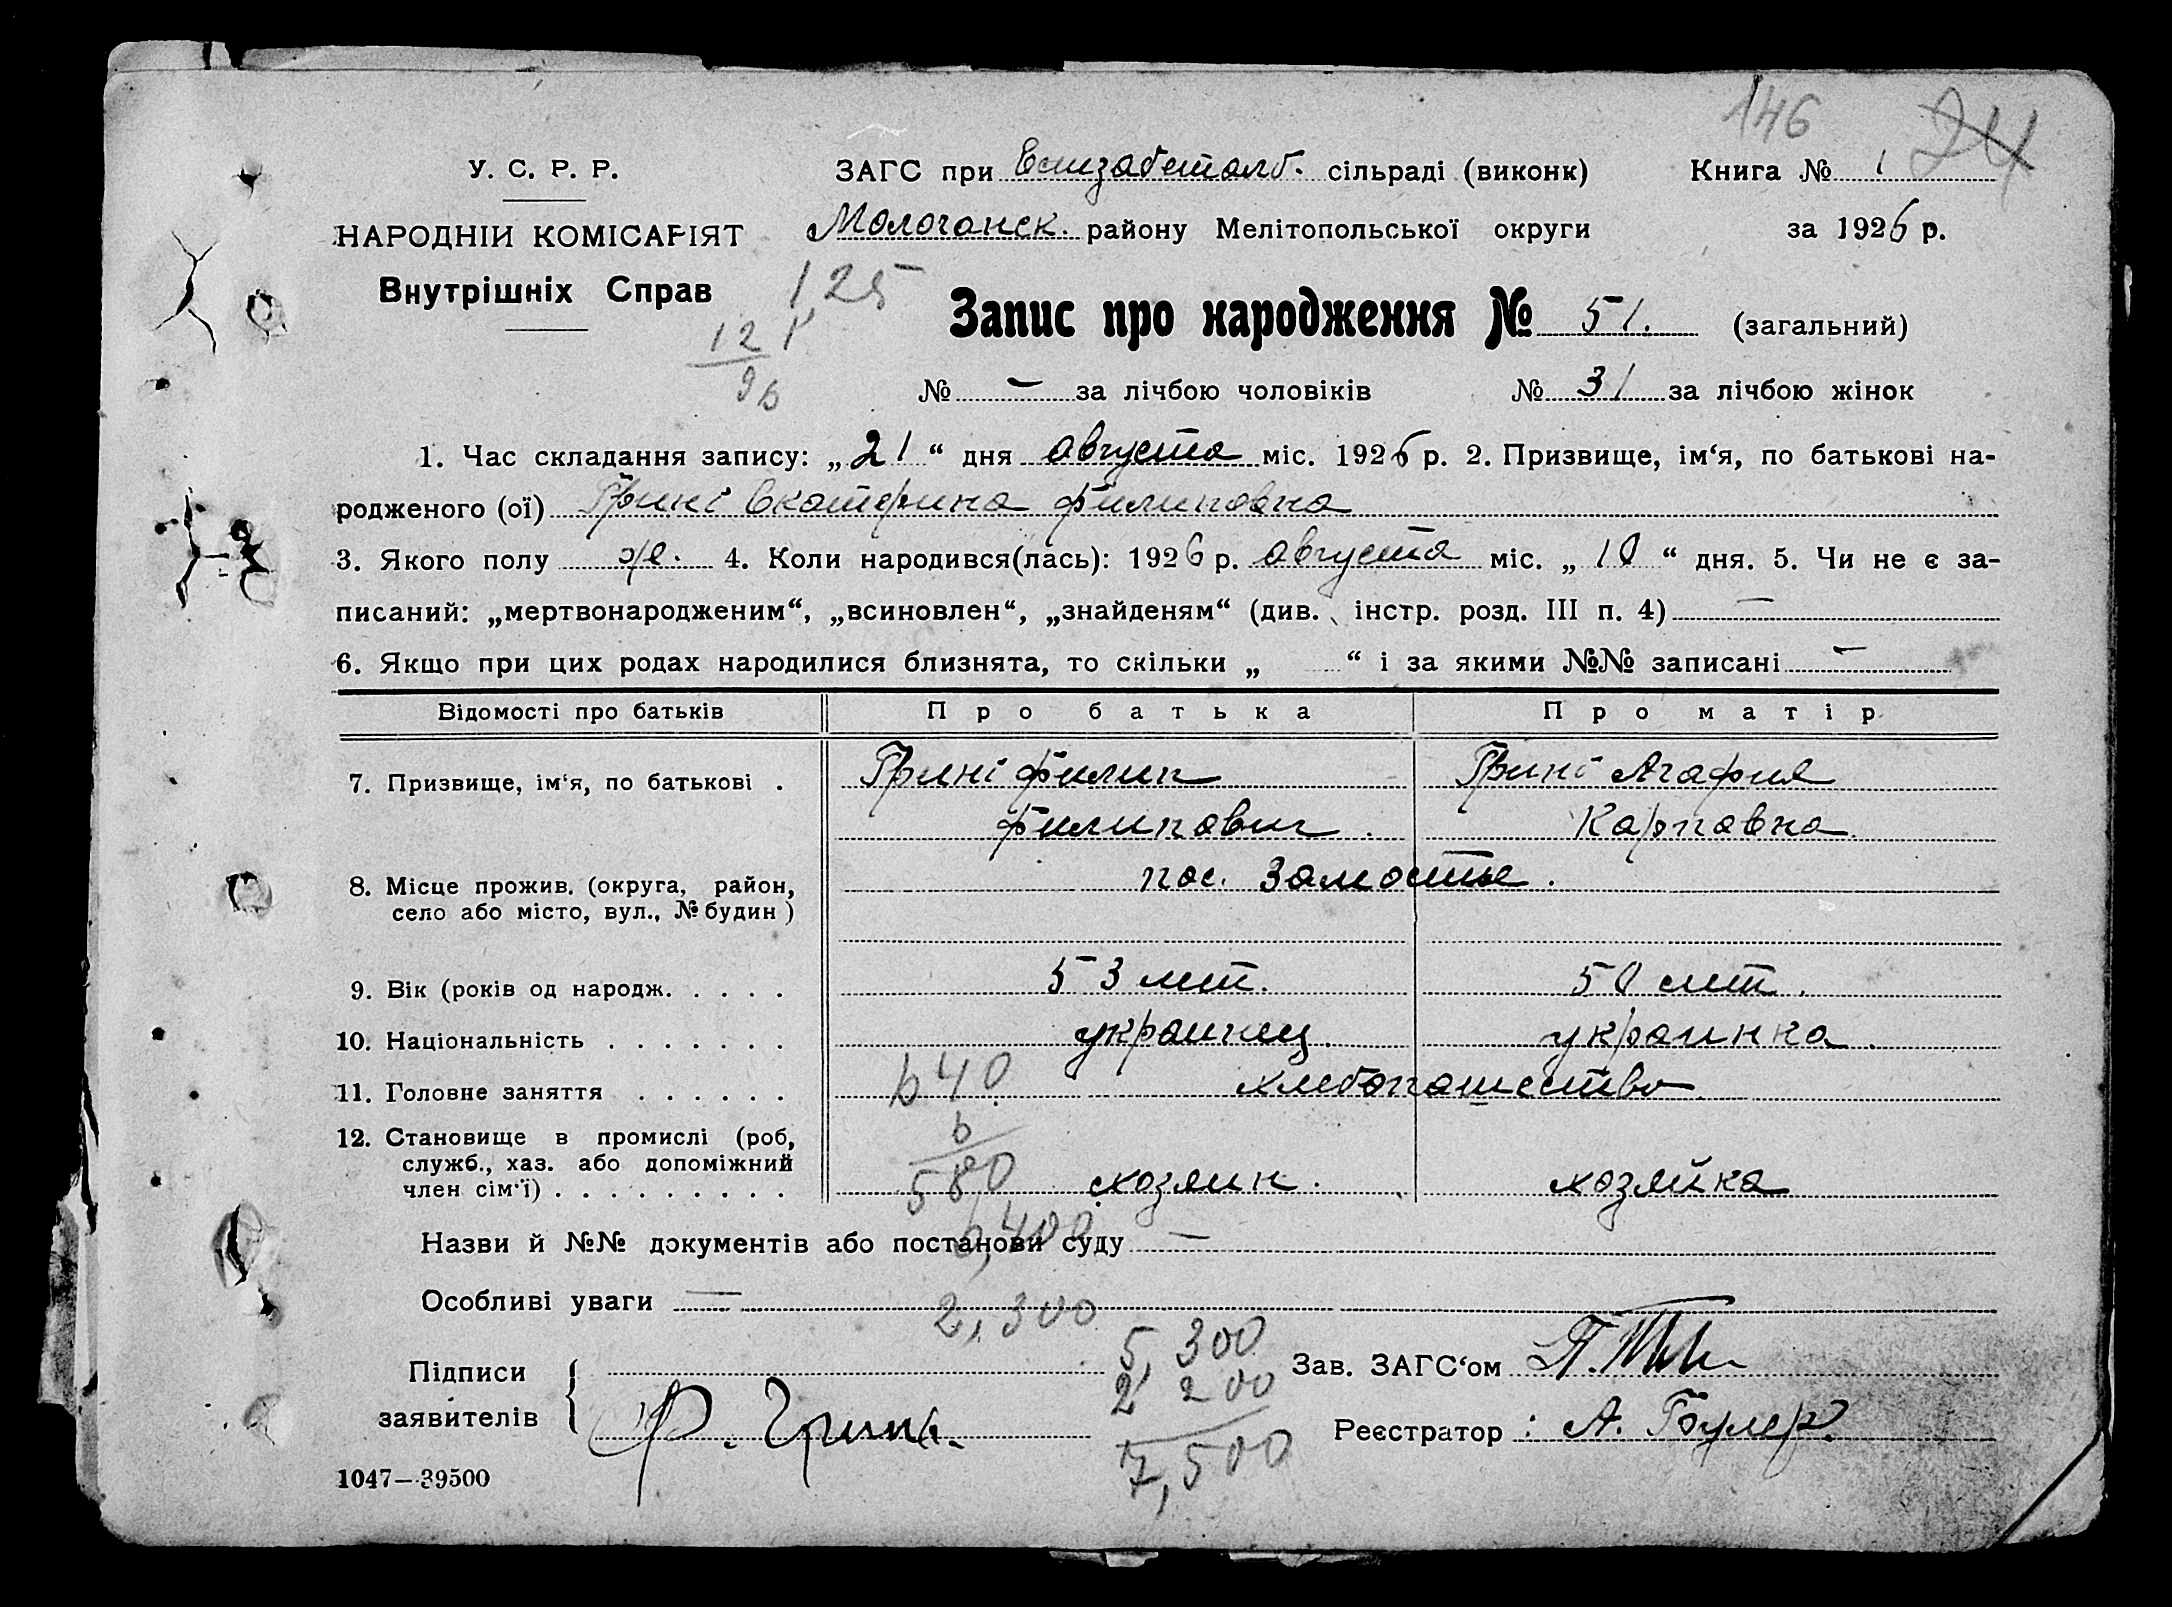 146 24
У. С. Р. Р.
ЗАГС при Елизабеталб. сільраді (виконк) Книга № 1
НАРОДНІЙ КОМІСАРІЯТ
Молочанск. району Мелітопольської округи за 1926 р.
Внутрішніх Справ
125
Запис про народження № 51. (загальний)
12
№ – за лічбою чоловіків № 31 за лічбою жінок
1. Час складання запису: „21“ дня августа міс. 1926 р. 2. Призвище, ім‘я, по батькові на-
родженого (ої) Гринь Екатерина Филиповна
3. Якого полу же. 4. Коли народився(лась): 1926 р. августа міс. „10“ дня. 5. Чи не є за-
писаний: „мертвонародженим“, „всиновлен“, „знайденям“ (див. інстр. розд. III п. 4) —
6. Якщо при цих родах народилися близнята, то скільки „ “ і за якими №№ записані –
Відомості про батьків Про батька Про матір
7. Призвище, ім‘я, по батькові . Гринь Филип Гринь Агафия
Филипович. Карповна.
8. Місце прожив. (округа, район, пос. Замостье.
село або місто, вул., № будин )
9. Вік (років од народж. . . . . 53 лет. 50 лет.
10. Національність . . . . . . . украинец. украинка.
11. Головне заняття . . . . . . 640 хлебопашество
12. Становище в промислі (роб,
6
служб., хаз. або допоміжний
член сім‘ї) . . . . . . . . . 580 хозяин. хозяйка
Назви й №№ документів або постанови суду —
6,400
Особливі уваги —
2,300
5,300
Підписи
Зав. ЗАГС‘ом
2 200
заявителів Ф. Гринь.
Реєстратор : А. Гоулер.
7,500
1047—39500